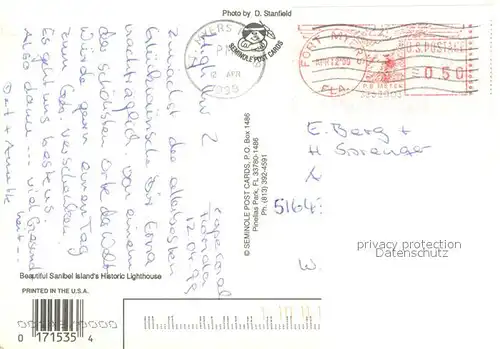 Photo by D. Stanfield
SEMINOLE POST CARDS
FORT MYERS
APR 12 '99
FLA.
U.S. POSTAGE
0.50
P.B. METER
E. Berg +
H. Sprenger
5164
W.
privacy protection
Datenschutz
© SEMINOLE POST CARDS, P.O. Box 1486
Pinellas Park, FL 33780-1486
Ph. (813) 392-4591
Cape Coral
Florida
12.04.99
zunächst die allerbesten
Glückwünsche für Erna
nachträglich. Von einem
der schönsten Orte der Welt
würde gern einen Tag
zum
verschenken!
Es geht uns bestens.
Also dann ... viel Gesund
heit ...
Beautiful Sanibel Island's Historic Lighthouse
PRINTED IN THE U.S.A.
0 171535 4